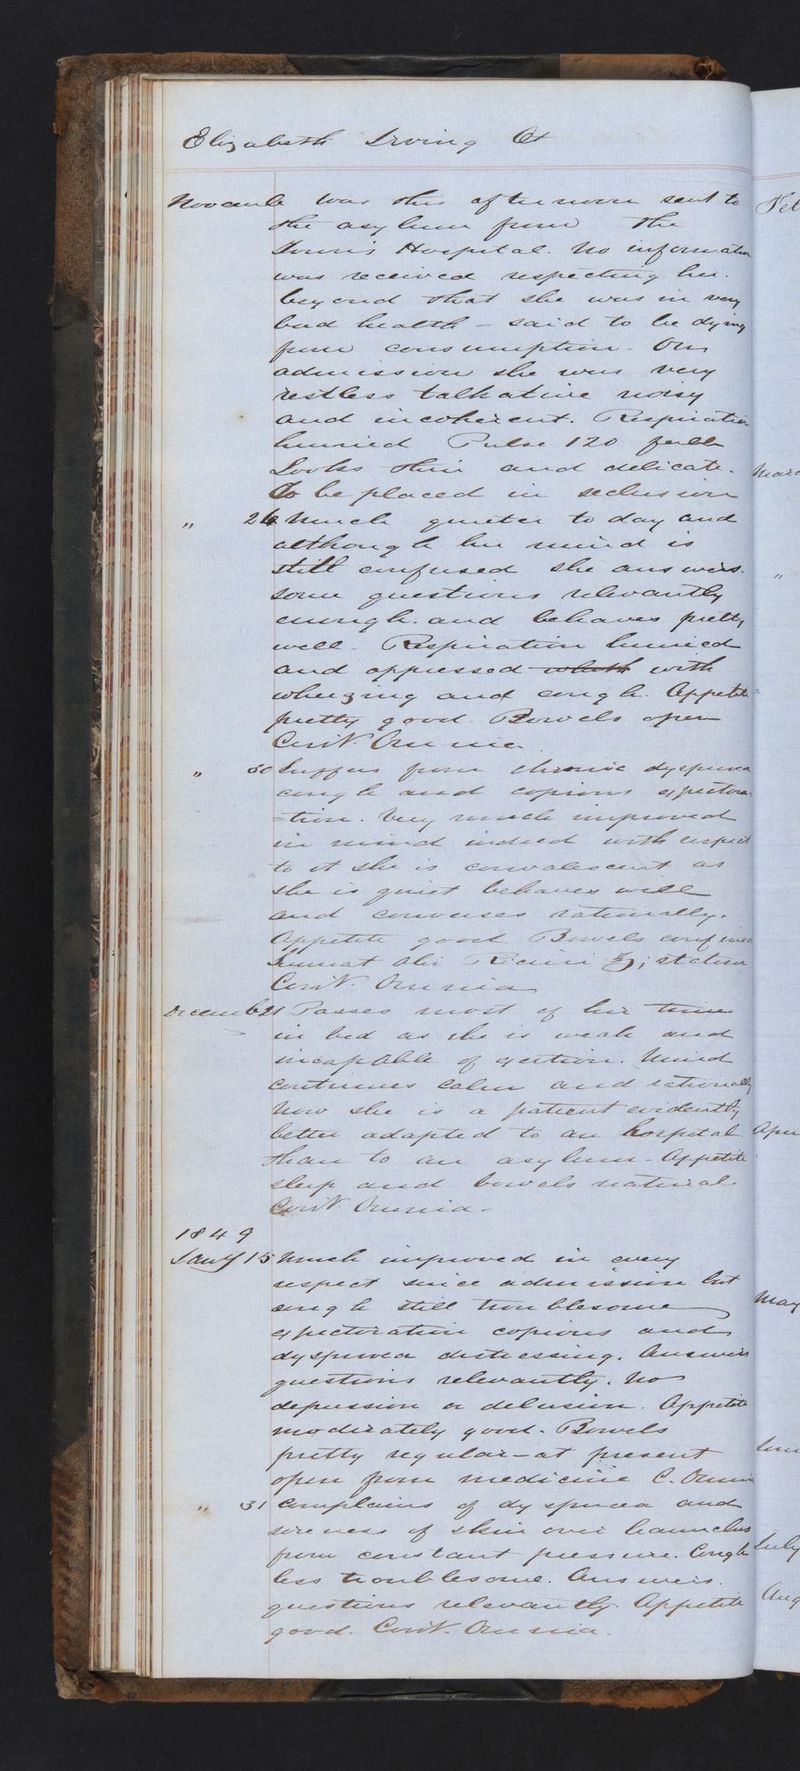 Elizabeth Irving
was this afternoon sent to
the asylum from the
Town's Hospital. No information
was received respecting her.
beyond that she was in very
bad health - said to be dying
from consumption. On
admission she was very
restless talkative noisy
and incoherent. Respiration
hurried Pulse 120 full
Looks thin and delicate.
To be placed in seclusion
" 26 Much quieter to day and
although her mind is
still confused she answers.
some questions relevantly
enough. and behaves pretty
well. Respiration hurried
and oppressed with
wheezing and cough. Appetite
pretty good. Bowels open
Cont. Omnia
" 30 Suffers from chronic dyspnoea
cough and copious expectora-
=tion. Very much improved
in mind indeed with respect
to it she is convalescent as
she is quiet behaves well
and converses rationally.
Appetite good Bowels confined
Olei Ricini ℥j; statim
Cont. Omnia
21 Passes most of her time
in bed as she is weak and
incapable of exertion. Mind
continues calm and rationally
Now she is a patient evidently
better adapted to an hospital
than to an asylum - Appetite
sleep and bowels natural.
Cont. Omnia -
1849
Jany 15 Much improved in every
respect since admission but
cough still troublesome
expectoration copious and
dyspnoea distressing. Answers
questions relevantly. No
depression or delusion. Appetite
moderately good. Bowels
pretty regular - at present
open from medicine C. Omnia
" 31 Complains of dyspnoea and
soreness of skin over haunches
from constant pressure. Cough
less troublesome. Answers.
questions relevantly. Appetite
good. Cont. Omnia.
Feb
Marc
"
Apri
May
June
July
Aug